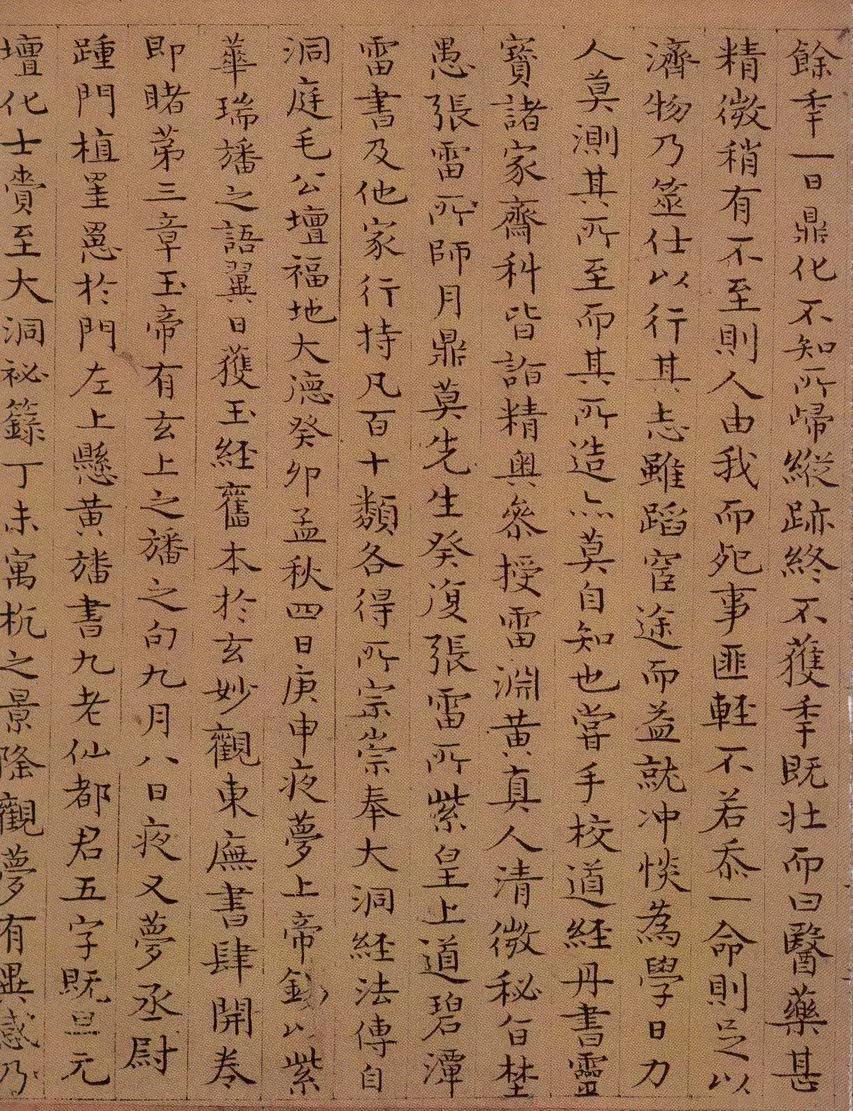 餘年一日鼎化不知所歸縱跡終不獲年既壯而曰醫藥甚
精微稍有不至則人由我而死事匪輕不若忝一命則足以
濟物乃筮仕以行其志雖蹈宦途而益就冲惔為學日力
人莫測其所至而其所造亦莫自知也嘗手校道經丹書靈
寶諸家齋科皆詣精奥叅授雷淵黄真人清微秘旨埜
愚張雷所師月鼎莫先生癸復張雷所紫皇上道碧潭
雷書及他家行持凡百十類各得所宗崇奉大洞經法傳自
洞庭毛公壇福地大德癸卯孟秋四日庚申夜夢上帝錢以紫
華瑞旛之語翼日獲玉經舊本於玄妙觀東廡書肆開卷
即睹苐三章玉帝有玄上之旛之句九月八日夜又夢丞尉
踵門植罜罳於門左上懸黄旛書九老仙都君五字既旦元
壇化士賫至大洞祕籙丁未寓杭之景隆觀夢有異感乃